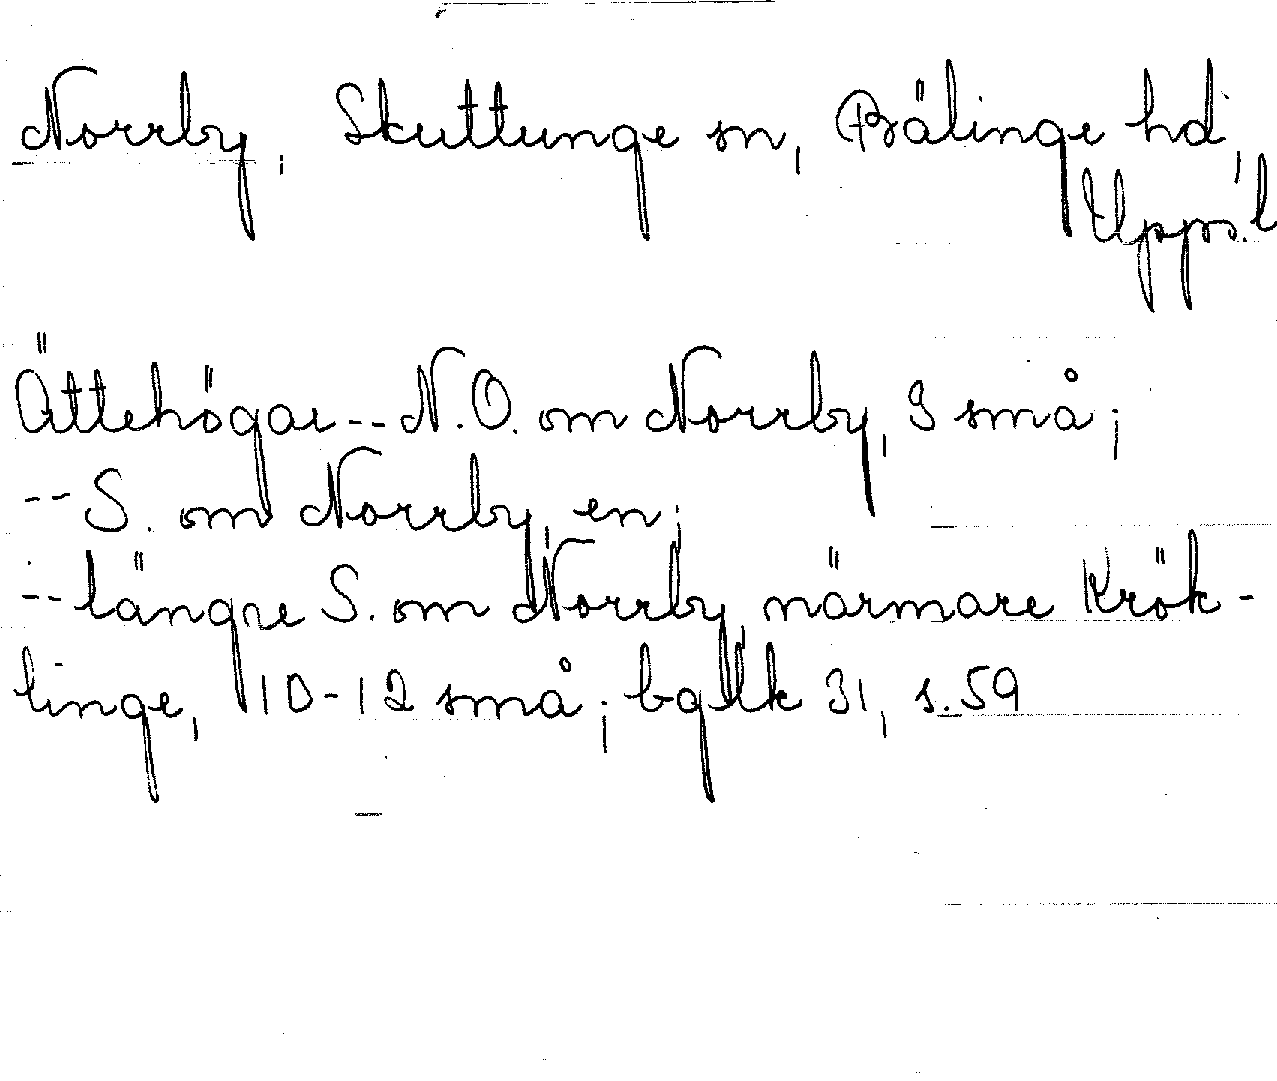 Norrby, Skuttunge sn, Bälinge hd,
Upps. l
Ättehögar -- N.O. om Norrby, 3 små;
-- S. om Norrby, en;
-- längre S. om Norrby, närmare Krök-
linge, 10-12 små; bglk 31, s. 59